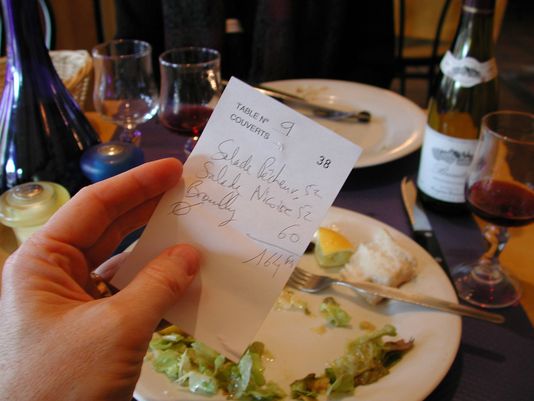 TABLE N° 9
COUVERTS
38
Salade Pêcheur, 52
Salade Niçoise 52
Brouilly 60
164